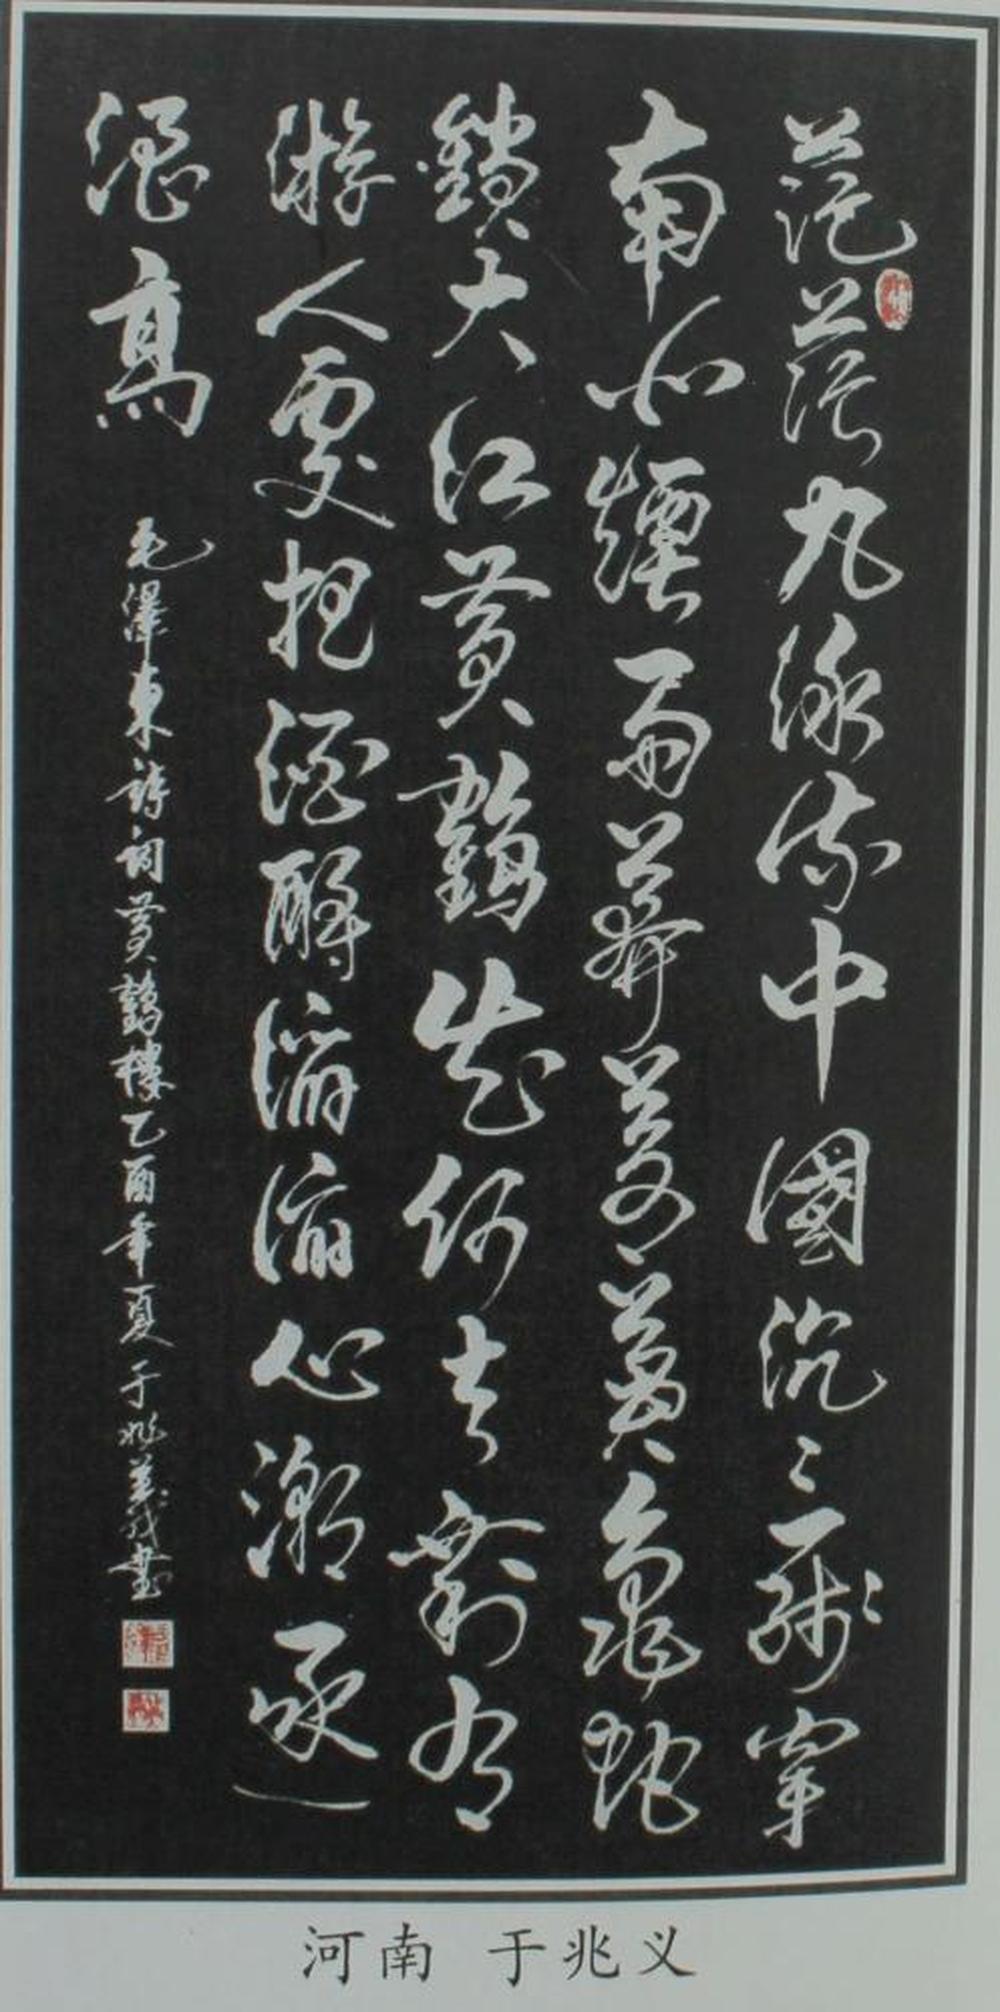 茫茫九派流中國沉々一綫穿
南北煙雨莽蒼蒼龜蛇
鎖大江黃鶴知何去剩有
游人處把酒酹滔滔心潮逐
浪高
毛澤東詩詞黃鶴樓乙酉年夏于兆義書
河南 于兆义